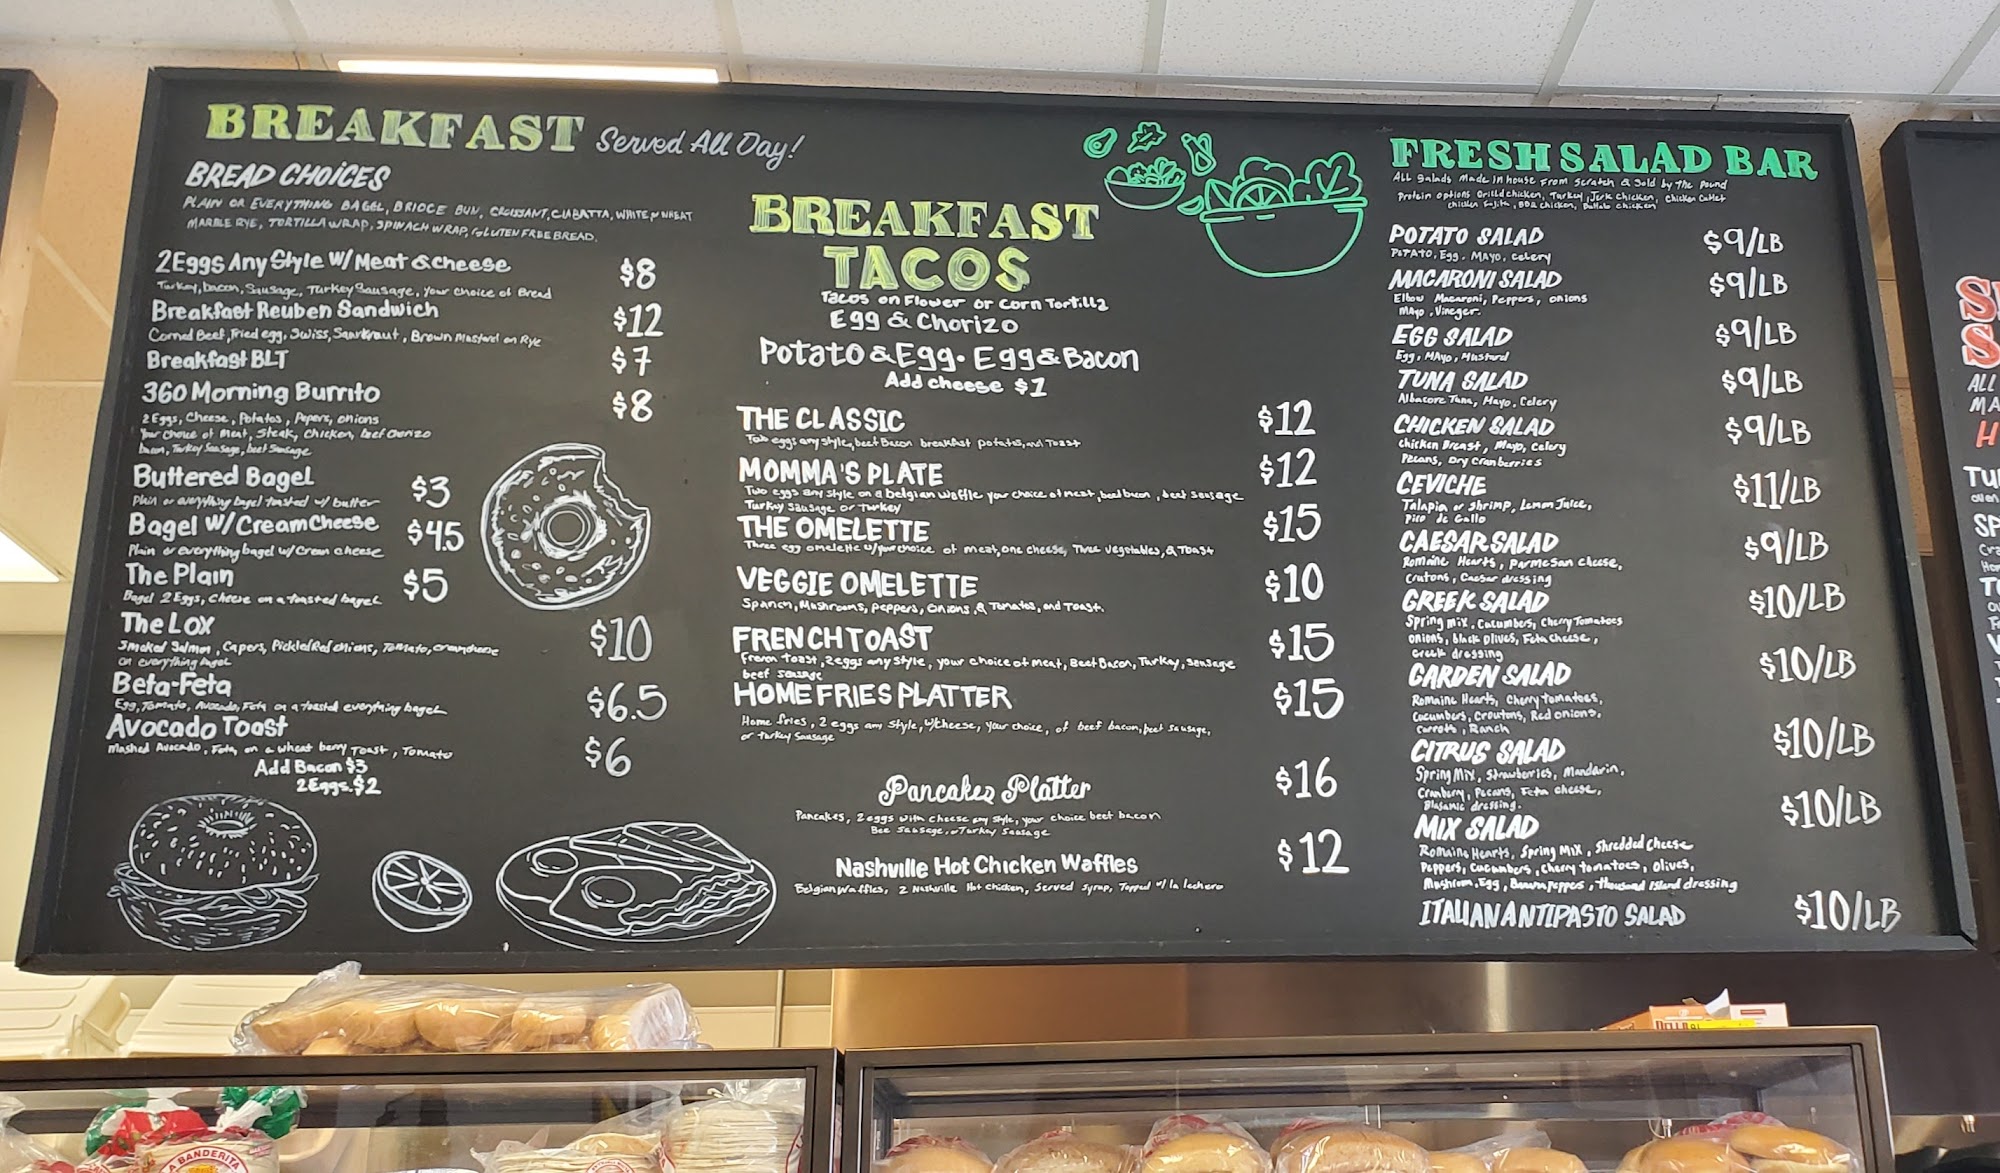 BREAKFAST Served All Day!
BREAD CHOICES
PLAIN OR EVERYTHING BAGEL, BRIOCE BUN, CROISSANT, CIABATTA, WHITE WHEAT
MARBLE RYE, TORTILLA WRAP, SPINACH WRAP, GLUTEN FREE BREAD.
2 Eggs Any Style W/ Meat & cheese $8
Turkey, bacon, Sausage, Turkey Sausage, your choice of Bread
Breakfast Reuben Sandwich $12
Corned Beef, Fried egg, Swiss, Saurkraut, Brown Mustard on Rye
Breakfast BLT $7
360 Morning Burrito $8
2 Eggs, Cheese, Potatos, Papers, onions
Your choice of Meat, Steak, Chicken, beef chorizo
bacon, Turkey Sausage, beef Sausage
Buttered Bagel $3
Plain or everything bagel toasted w/ butter
Bagel W/ Cream Cheese $4.5
Plain or everything bagel w/ Cream cheese
The Plain $5
Bagel 2 Eggs, Cheese on a toasted bagel
The Lox $10
Smoked Salmon, Capers, Pickled Red onions, Tomato, creamcheese
on everything bagel
Beta-Feta $6.5
Egg, Tomato, Avocado, Feta on a toasted everything bagel
Avocado Toast $6
Mashed Avocado, Feta, on a wheat berry Toast, Tomato
Add Bacon $3
2 Eggs $2
BREAKFAST
TACOS
Tacos on Flower or Corn Tortilla
Egg & Chorizo
Potato & Egg • Egg & Bacon
Add cheese $1
THE CLASSIC $12
Two eggs any style, beef Bacon breakfast potatos, and Toast
MOMMA'S PLATE $12
Two eggs any style on a belgian waffle your choice of meat, beef bacon, beef sausage
Turkey Sausage or Turkey
THE OMELETTE $15
Three egg omelette w/ your choice of meat, one cheese, Three vegetables, & Toast
VEGGIE OMELETTE $10
Spanch, Mushrooms, peppers, Onions, & Tomatos, and Toast.
FRENCH TOAST $15
French toast, 2 eggs any style, your choice of meat, Beef Bacon, Turkey, sausage
beef sausage
HOME FRIES PLATTER $15
Home fries, 2 eggs any style, w/ cheese, your choice, of beef bacon, beef sausage,
or turkey Sausage
Pancakes Platter $16
Pancakes, 2 eggs with cheese any style, your choice beef bacon
Bee Sausage, or Turkey Sausage
Nashville Hot Chicken Waffles $12
Belgian Waffles, 2 Nashville Hot chicken, Served Syrup, Topped w/ la lechera
FRESH SALAD BAR
All Salads Made in house From Scratch & Sold by The Pound
Protein options Grilld chicken, Turkey, Jerk chicken, Chicken Cutlet
chicken Fajita, BBQ chicken, Buffalo chicken
POTATO SALAD $9/LB
POTATO, Egg, MAYO, celery
MACARONI SALAD $9/LB
Elbow Macaroni, Peppers, onions
MAyo, Vineger.
EGG SALAD $9/LB
Egg, MAyo, Mustard
TUNA SALAD $9/LB
Albacore Tuna, Mayo, Celery
CHICKEN SALAD $9/LB
Chicken Breast, Mayo, Celery
Pecans, Dry Cranberries
CEVICHE $11/LB
Talapia or Shrimp, Lemon Juice,
Pico de Gallo
CAESAR SALAD $9/LB
Romaine Hearts, Parmesan cheese,
Crutons, Caesar dressing
GREEK SALAD $10/LB
Spring mix, Cucumbers, Cherry Tomatoes
onions, black olives, Feta cheese,
Greek dressing
GARDEN SALAD $10/LB
Romaine Hearts, Cherry tomatoes,
Cucumbers, Croutons, Red onions,
Carrots, Ranch
CITRUS SALAD $10/LB
Spring Mix, Strawberries, Mandarin,
Cranberry, Pecans, Feta cheese,
Blasamic dressing.
MIX SALAD $10/LB
Romaine Hearts, Spring Mix, Shredded Cheese
Peppers, Cucumbers, cherry tomatoes, Olives,
Mushroom, Egg, Banana peppers, thousand Island dressing
ITALIAN ANTIPASTO SALAD $10/LB
ALL
MA
H
TU
SP
A BANDERITA